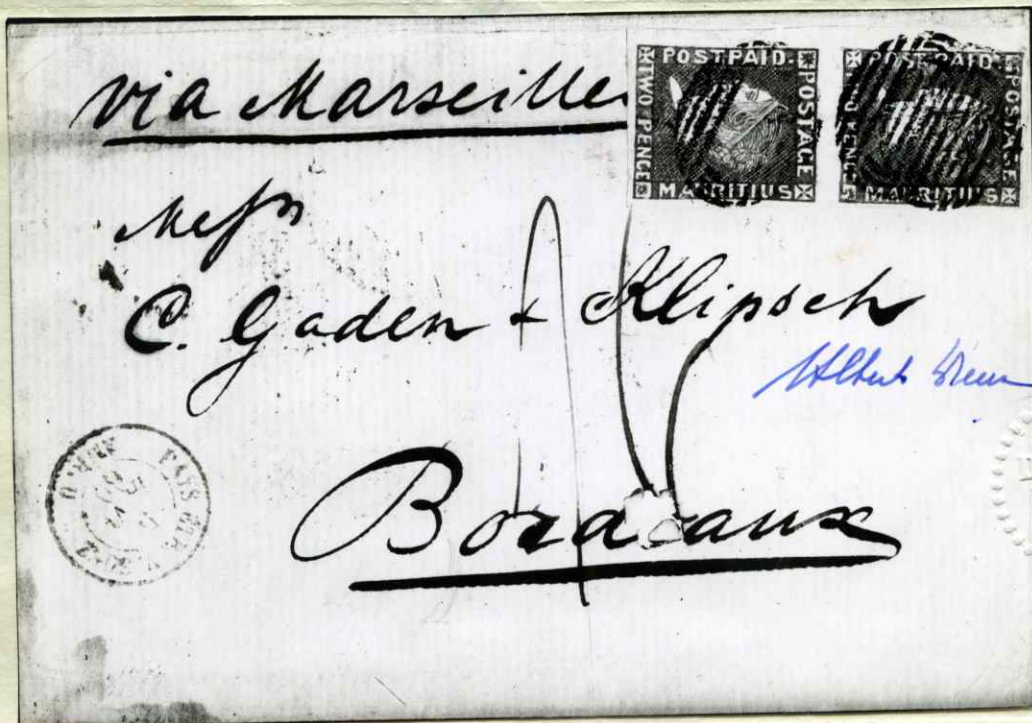 via Marseille
POSTPAID.
TWO PENCE
POSTAGE
MAURITIUS
POSTPAID.
POSTAGE
MAURITIUS
Messrs
C. Gaden & Klipsch
Bordeaux